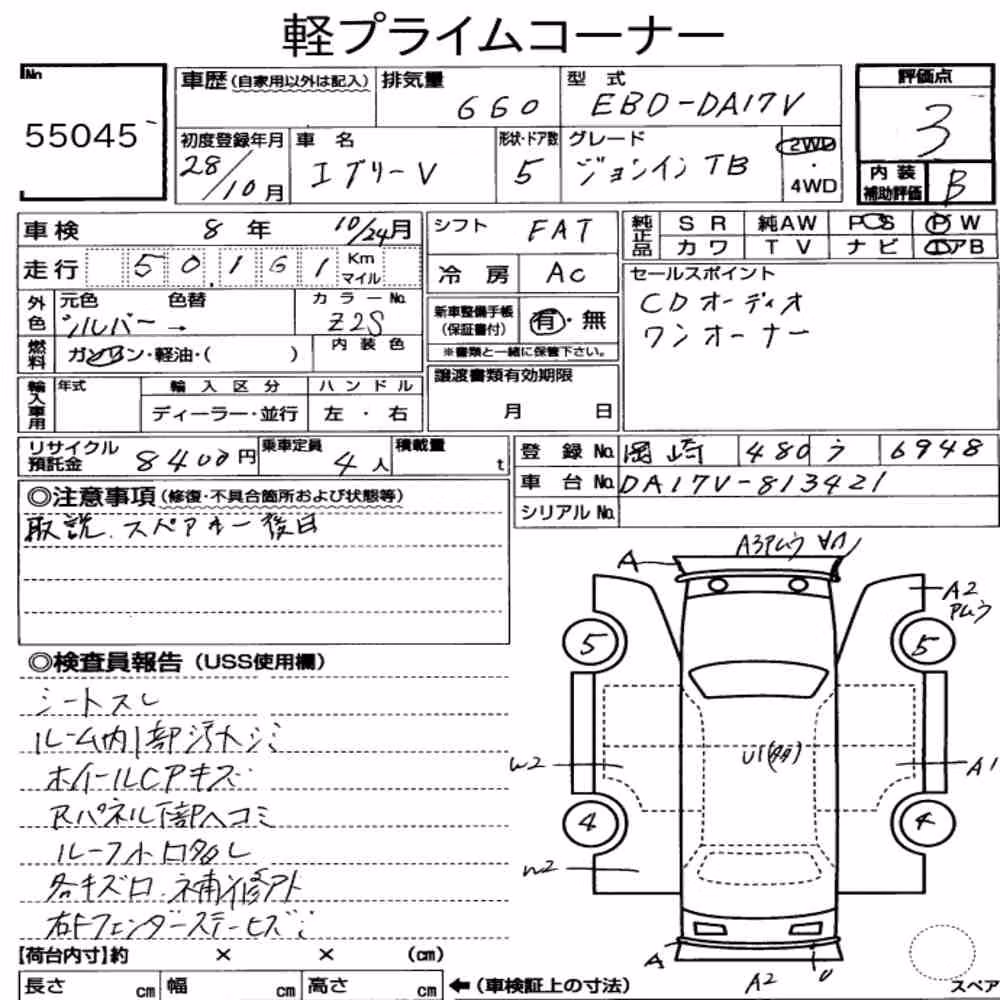 軽プライムコーナー
No. 55045
車歴 (自家用以外は記入)
排気量 660
型式 EBD-DA17V
評価点 3
内装補助評価 B
初度登録年月 28/10月
車名 エブリーV
形状・ドア数 5
グレード ジョインTB
2WD ・ 4WD
車検 8年 10/24月
走行 50,161 Km マイル
外色 元色 シルバー → 色替
カラーNo. Z2S
燃料 ガソリン・軽油・( )
内装色
輸入車用 年式 輸入区分 ディーラー・並行 ハンドル 左・右
シフト FAT
冷房 AC
新車整備手帳 (保証書付) 有・無
※書類と一緒に保管下さい。
譲渡書類有効期限
月 日
純正品 SR 純AW PS PW
カワ TV ナビ エアB
セールスポイント
CDオーディオ
ワンオーナー
リサイクル預託金 8400円
乗車定員 4人
積載量 t
登録No. 岡崎 480 う 6948
車台No. DA17V-813421
シリアルNo.
◎注意事項 (修復・不具合箇所および状態等)
取説、スペアキー後日
◎検査員報告 (USS使用欄)
シートスレ
ルーム内1部汚れシミ
ホイールCアキズ
Rパネル下部ヘコミ
各キズロ、補修アト
右Fフェンダーステー
A
A3アムラ
A2
アムラ
5
5
W2
U1(多)
A1
4
4
W2
A
A2
U
【荷台内寸】約 × × (cm)
長さ cm 幅 cm 高さ cm
←(車検証上の寸法)
スペア